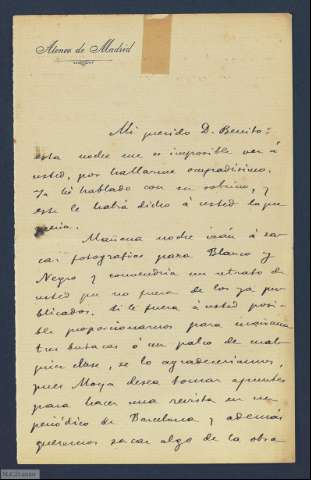 Ateneo de Madrid
Mi querido D. Benito:
esta noche me es imposible ver á
usted, por hallarme ocupadísimo.
Ya hé hablado con su sobrino, y
este le habrá dicho á usted lo que
Mañana noche irán á sa-
car fotografias para Blanco y
Negro y convendria un retrato de
usted que no fuera de los ya pu-
blicados. Si le fuera á usted posi-
ble proporcionarnos para mañana
tres butacas ó un palco de cual-
quier clase, se lo agradeceriamos,
pues Moya desea tomar apuntes
para hacer una revista en un
periódico de Barcelona y además
queremos sacar algo de la obra